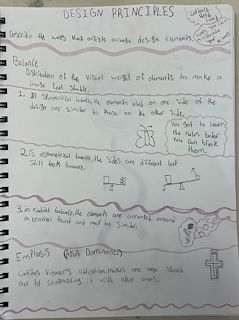 DESIGN PRINCIPLES
Describe the ways that artists arrange design elements.
Balance
Distribution of the visual weight of elements to make a
image feel stable.
1. In symmetrical balance, the elements used on one side of the
design are similar to those on the other side.
You got to learn
the rules befor
you can break
them.
2. In asymmetrical balance, the sides are different but
still look balance.
3. in radial balance, the elements are arranged around
a central point and must be similar.
Emphasis (AKA Dominance)
Catches viewer's attention, makes one area stand
out by contrasting it with other areas.